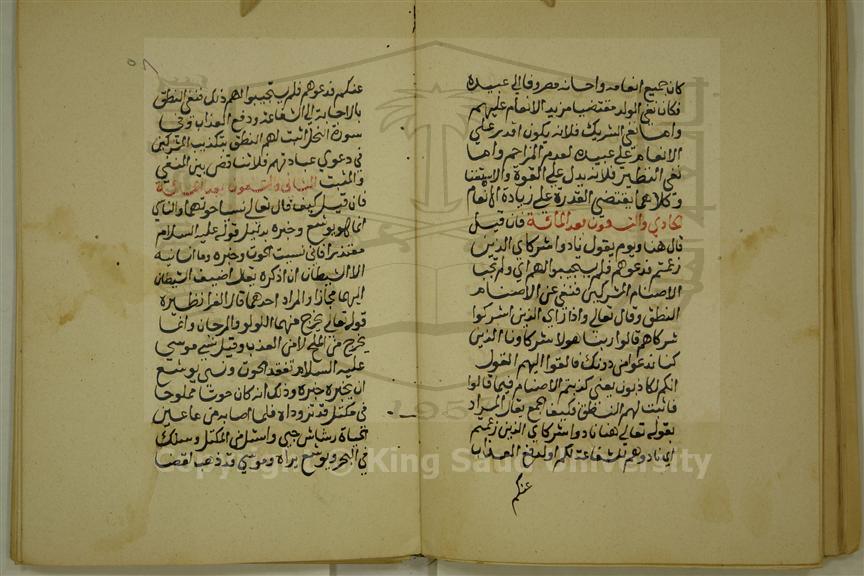 كان جميع انعامه واحسانه مصروفا الى عبيده
فكان نفي الولد مقتضيا مزيد الانعام عليهم
واما نفي الشريك فلانه يكون اقدر على
الانعام على عبيده لعدم المزاحم واما
نفي النظير فلانه يدل على القوة والاستغنا
وكلاهما يقتضي القدرة على زيادة الانعام
الحادي والتسعون بعد الماية فان قيل
قال هنا ويوم يقول نادوا شركاي الذين
زعمتم فدعوهم فلم يستجيبوا لهم اي ولم تجب
الاصنام المشركين فنفي عن الاصنام
النطق وقال تعالى واذا راي الذين اشركوا
شركاهم قالوا ربنا هولا شركاونا الذين
كنا ندعوا من دونك فالقوا اليهم القول
انكم لكاذبون يعني كذبتم الاصنام فيما قالوا
فاثبت لهم النطق فكيف الجمع يقال المراد
بقوله تعالى هنا نادوا شركاي الذين زعمتم
اي نادوهم للشفاعة لكم او لدفع العذاب
عنكم
عنكم فدعوهم فلم يستجيبوا لهم ذلك فنفي النطق
بالاجابة الى الشفاعة ودفع العذاب وفي
سورة النحل اثبت لهم النطق بتكذيب المشركين
في دعوى عبادتهم فلا تناقض بين المنفي
والمثبت الثاني والتسعون بعد الماية
فان قيل كيف قال تعالى نسيا حوتهما والناسي
انما هو يوشع وحده بدليل قوله عليه السلام
معتذرا فاني نسيت الحوت وما انسانيه
الا الشيطان ان اذكره يقال اضيف النسيان
اليهما مجازا والمراد احدهما قال الفرا نظيره
قوله تعالى يخرج منهما اللولو والمرجان وانما
يخرج من الملح لا من العذب وقيل نسي موسى
عليه السلام تفقد الحوت ونسي يوشع
ان يخبره خبره وذلك انه كان حوتا مملوحا
في مكتل قد تزوداه فلما اصابه من ما عين
الحياة رشاش حيي وانسل من المكتل وسلك
في البحر ويوشع يراه وموسى قد ذهب لقضا
Copyright © King Saud University